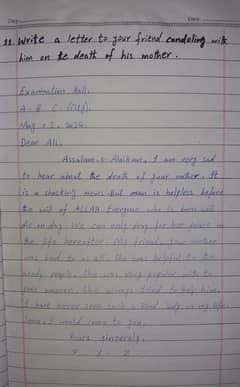 Day: Date:
11. Write a letter to your friend condoling with
him on the death of his mother.
Examination Hall,
A. B. C. (City).
May 02, 2024.
Dear Ali,
Assalam-o-Alaikum, I am very sad
to hear about the death of your mother. It
is a shocking news. But man is helpless before
the will of ALLAH. Everyone who is born will
die one day. We can only pray for her peace in
the life hereafter. My friend, your mother
was kind to us all. She was helpful to the
needy people. She was very popular with
poor women. She always tried to help him.
I have never seen such a kind lady in my life.
Soon, I would come to you.
Yours sincerely,
X Y Z